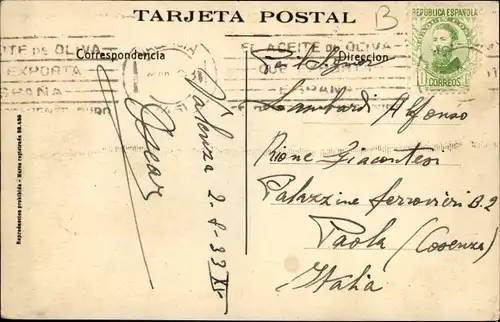 TARJETA POSTAL
B
REPÚBLICA ESPAÑOLA
CORREOS
EL ACEITE DE OLIVA
QUE
ESPAÑA
ITE DE OLIVA
EXPORTA
ESPAÑA
Correspondencia
Direccion
Valenza 2-8-33 XI
Oscar
Lombardi Alfonso
Rione Giacontesi
Palazzine ferrovieri B.2
Paola (Cosenza)
Italia
Reproduccion prohibida - Marca registrada